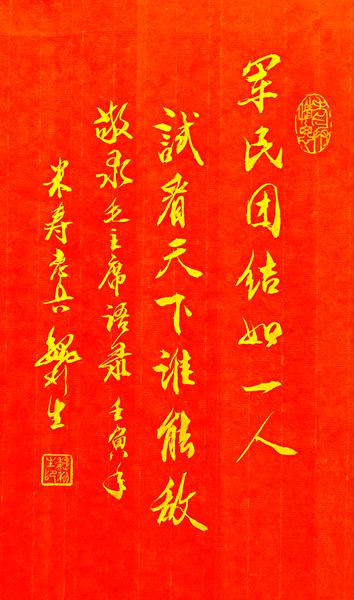 军民团结如一人
試看天下谁能敌
敬录毛主席语录 壬寅年
米寿老兵
生